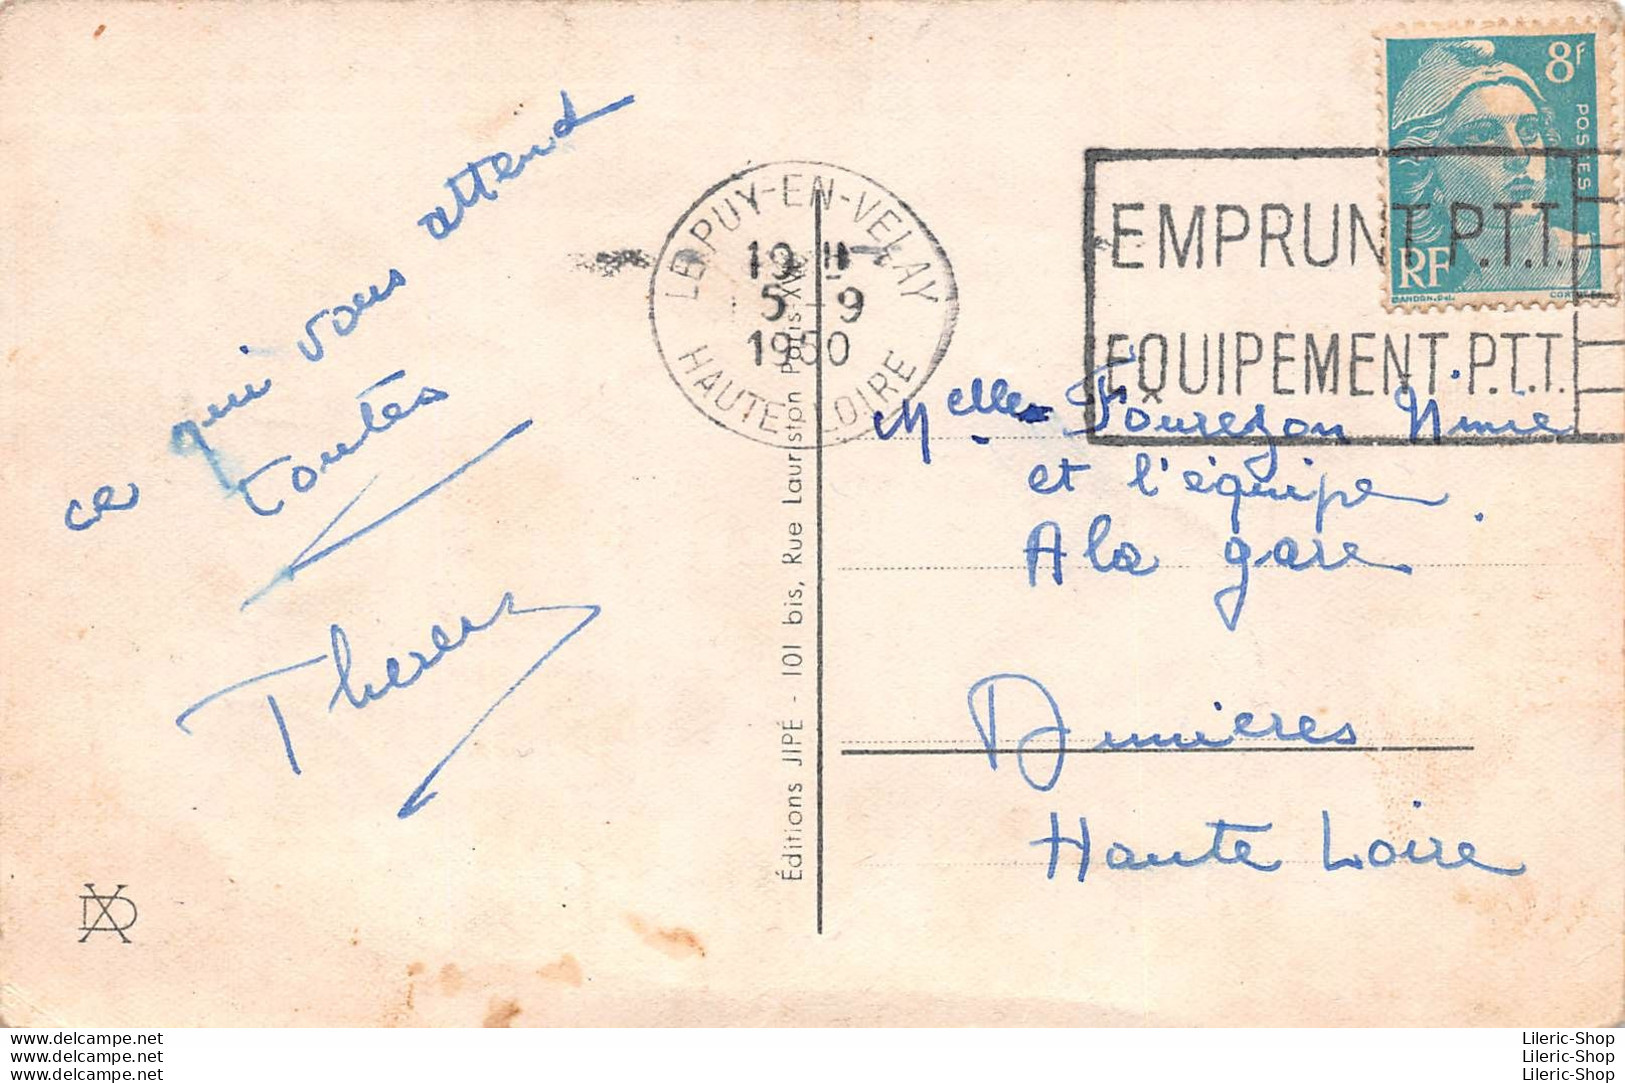 ce qui vous attend
toutes
Therese
LE PUY-EN-VELAY
19 H
5 -9
1950
HAUTE-LOIRE
EMPRUNT P.T.T.
EQUIPEMENT P.T.T.
8F
POSTES
RF
GANDON.Del.
Éditions JIPÉ - 101 bis, Rue Lauriston Paris-XVI
Melles Fourezon Mimie
et l'équipe
A la gare
Dunieres
Haute Loire
delcampe.net
Lileric-Shop
delcampe.net
Lileric-Shop
delcampe.net
Lileric-Shop